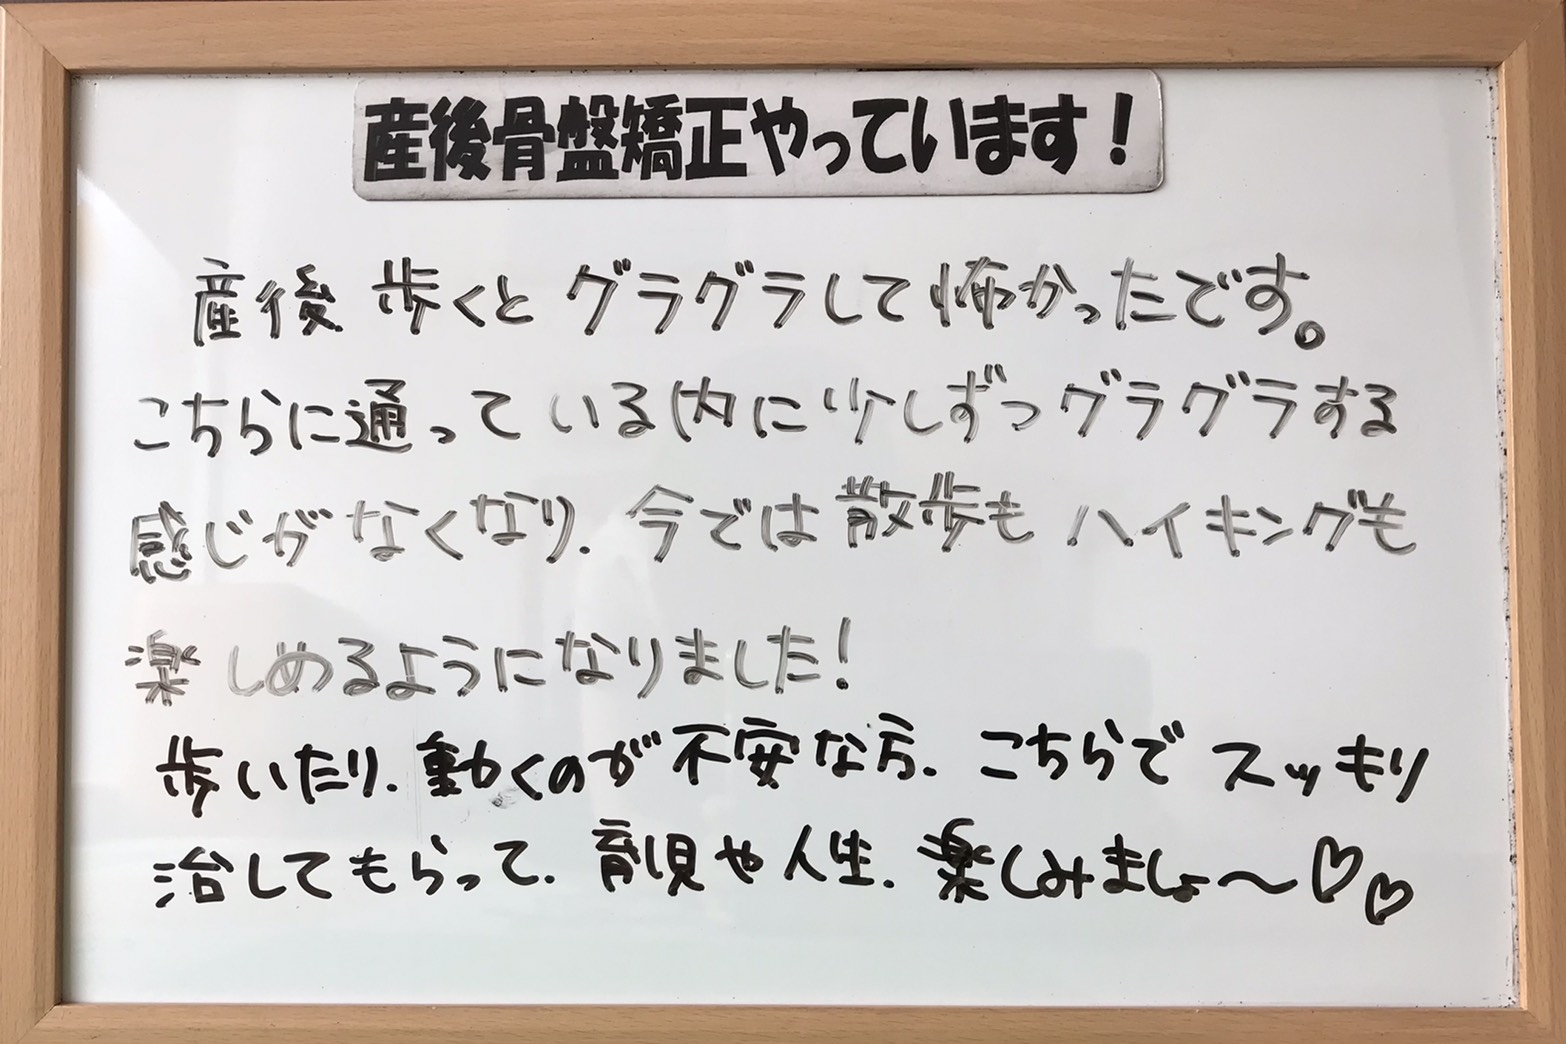 産後骨盤矯正やっています！
産後 歩くと グラグラして怖かったです。
こちらに通っている内に少しずつグラグラする
感じがなくなり、今では散歩も ハイキングも
楽しめるようになりました！
歩いたり、動くのが不安な方、こちらで スッキリ
治してもらって、育児や人生、楽しみましょ〜♡♡